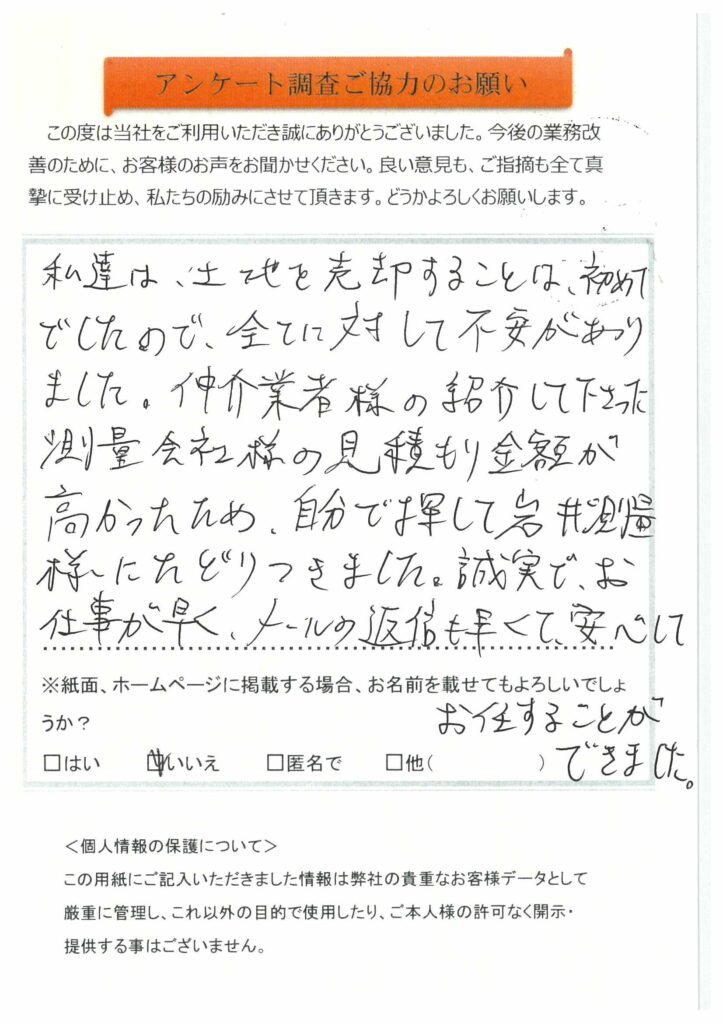 アンケート調査ご協力のお願い
この度は当社をご利用いただき誠にありがとうございました。今後の業務改
善のために、お客様のお声をお聞かせください。良い意見も、ご指摘も全て真
摯に受け止め、私たちの励みにさせて頂きます。どうかよろしくお願いします。
私達は、土地を売却することは、初めて
でしたので、全てに対して不安があり
ました。仲介業者様の紹介して下さった
測量会社様の見積もり金額が
高かったため、自分で探して岩井測量
様にたどりつきました。誠実で、お
仕事が早く、メールの返信も早くて、安心して
お任することが
できました。
※紙面、ホームページに掲載する場合、お名前を載せてもよろしいでしょ
うか？
□はい ☑いいえ □匿名で □他( )
＜個人情報の保護について＞
この用紙にご記入いただきました情報は弊社の貴重なお客様データとして
厳重に管理し、これ以外の目的で使用したり、ご本人様の許可なく開示・
提供する事はございません。